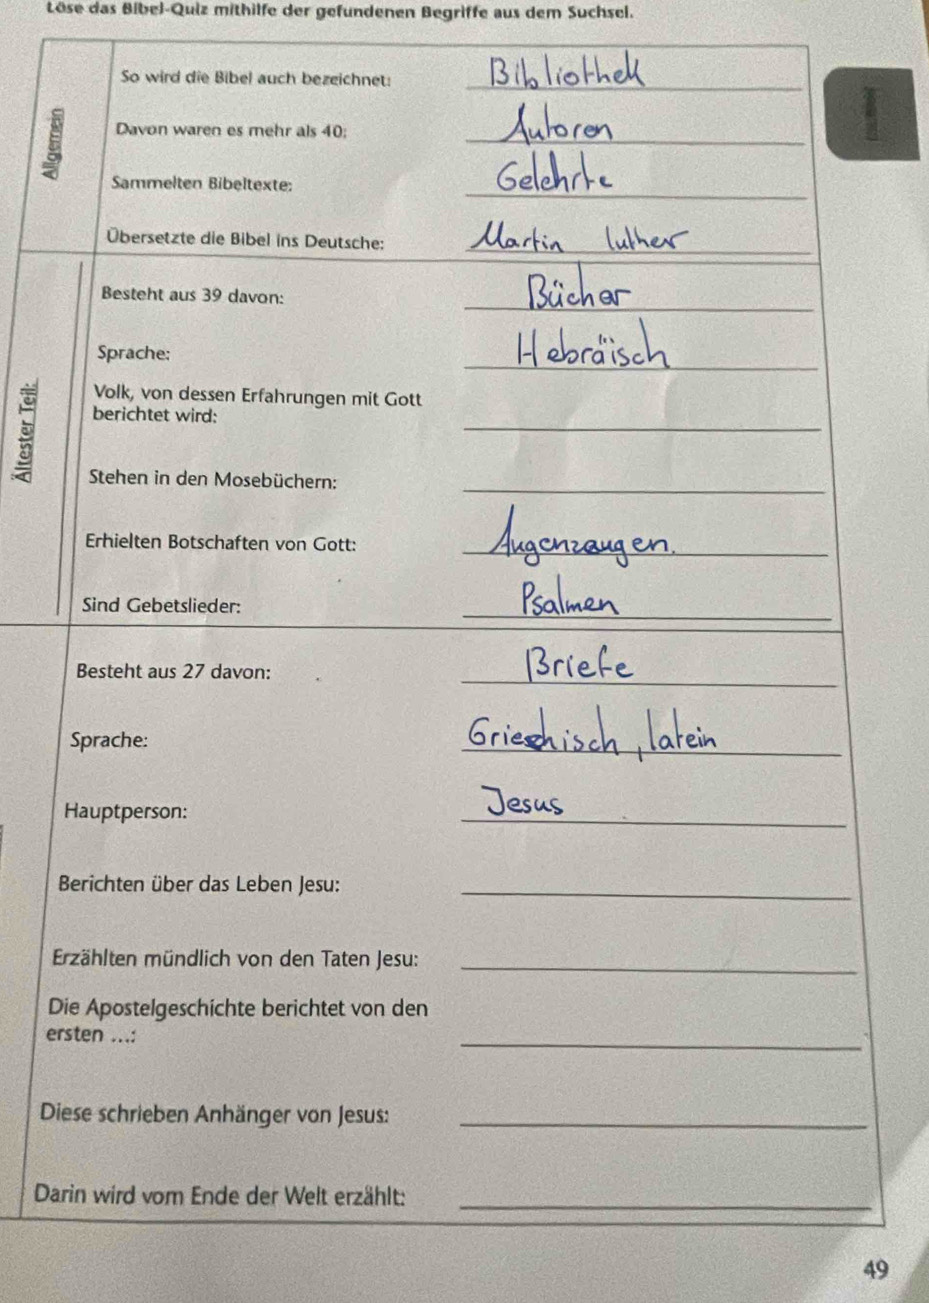 Löse das Bibel-Quiz mithilfe der gefundenen Begriffe aus dem Suchsel.
Allgemein
So wird die Bibel auch bezeichnet: Bibliothek
Davon waren es mehr als 40: Autoren
Sammelten Bibeltexte: Gelehrte
Übersetzte die Bibel ins Deutsche: Martin luther
Ältester Teil:
Besteht aus 39 davon: Bücher
Sprache: Hebräisch
Volk, von dessen Erfahrungen mit Gott
berichtet wird:
Stehen in den Mosebüchern:
Erhielten Botschaften von Gott: Augenzeugen.
Sind Gebetslieder: Psalmen
Besteht aus 27 davon: Briefe
Sprache: Griechisch, latein
Hauptperson: Jesus
Berichten über das Leben Jesu:
Erzählten mündlich von den Taten Jesu:
Die Apostelgeschichte berichtet von den
ersten ...:
Diese schrieben Anhänger von Jesus:
Darin wird vom Ende der Welt erzählt:
49